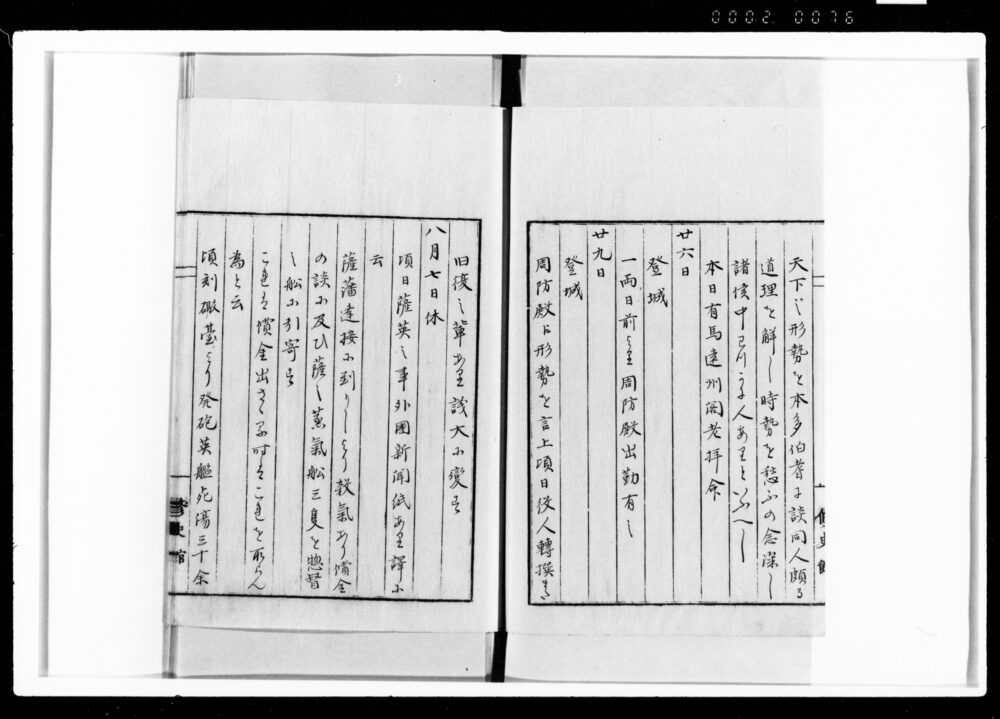 0002 0076
天下之形勢を本多伯耆に談同人頗る
道理を解し時勢を愁ふの念深し
諸侯中可リ之人ありといふへし
本日有馬遠州閣老拝命
廿六日
登城
一両日前より周防殿出勤有之
廿九日
登城
周防殿に形勢を言上頃日役人轉撰
修史館
旧復之輩あり議大に変す
八月七日休
頃日薩英之事外國新聞紙あり譯に
云
薩藩遠接に到りしより殺氣あり償金
の談に及ひ薩之蒸氣船三隻を惣督
之船に引寄す
これは償金出さゝる時はこれを取らん
為と云
頃刻礮臺より発砲英艦死傷三十余
修史館